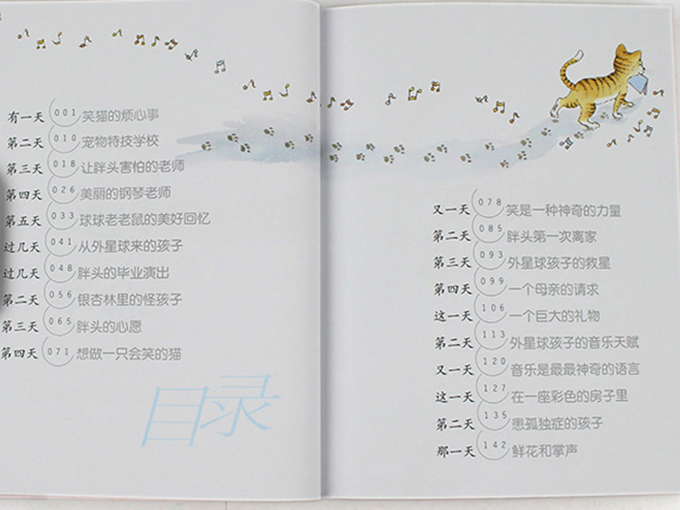 有一天 001 笑猫的烦心事
第二天 010 宠物特技学校
第三天 018 让胖头害怕的老师
第四天 026 美丽的钢琴老师
第五天 033 球球老老鼠的美好回忆
过几天 041 从外星球来的孩子
过几天 048 胖头的毕业演出
第二天 056 银杏林里的怪孩子
第三天 065 胖头的心愿
第四天 071 想做一只会笑的猫
目录
又一天 078 笑是一种神奇的力量
第二天 085 胖头第一次离家
第三天 093 外星球孩子的救星
第四天 099 一个母亲的请求
这一天 106 一个巨大的礼物
第二天 113 外星球孩子的音乐天赋
又一天 120 音乐是最最神奇的语言
这一天 127 在一座彩色的房子里
第二天 135 患孤独症的孩子
那一天 142 鲜花和掌声